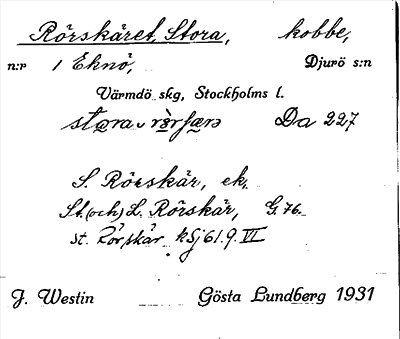 Rörskäret, Stora, kobbe,
n:r 1 Eknö, Djurö s:n
Värmdö skg, Stockholms l.
stora rörſæꞃə Da 227
S. Rörskär, ek.
St. (och) L. Rörskär, G. 76.
St. Rörskär kSj 61.9.VI
J. Westin Gösta Lundberg 1931